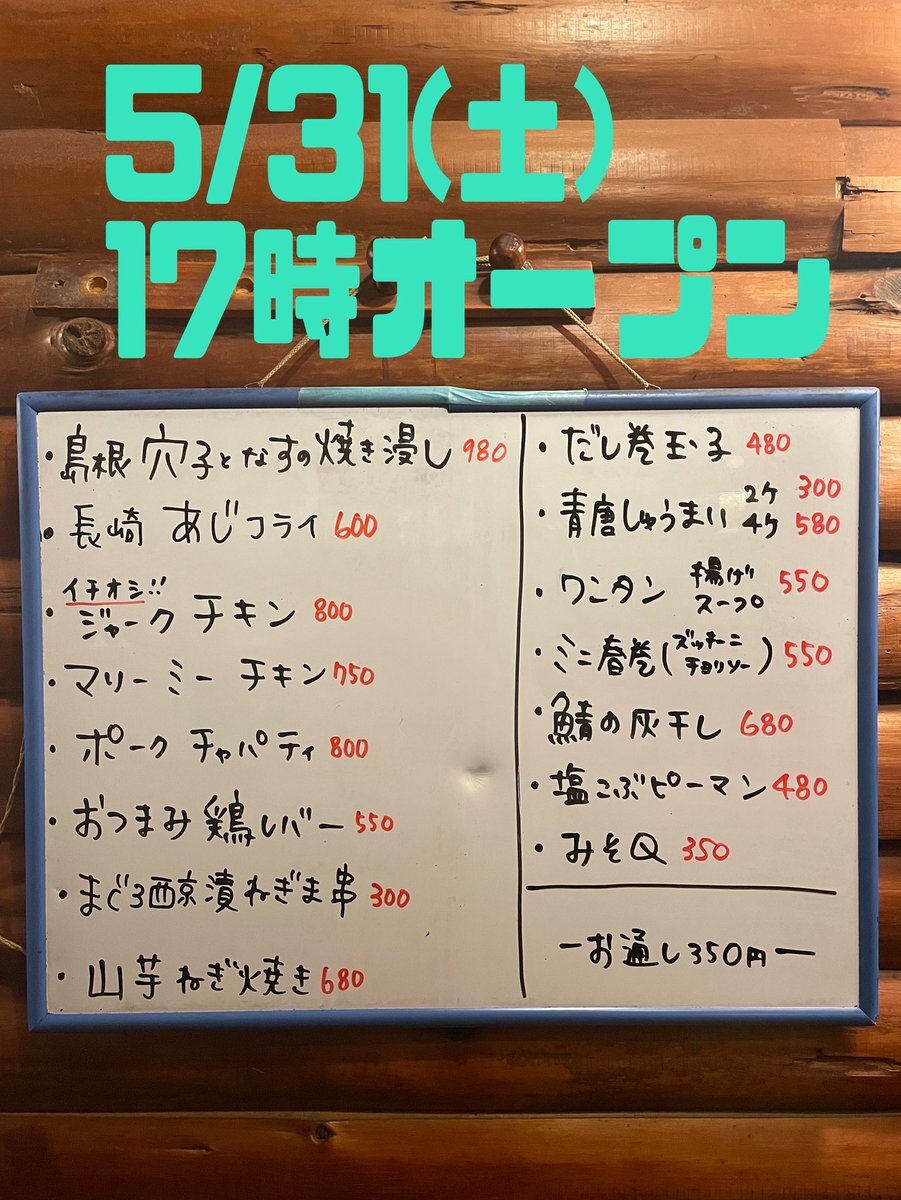 5/31(土)
17時オープン
・島根 穴子となすの焼き浸し 980
・長崎 あじフライ 600
イチオシ!!
・ジャーク チキン 800
・マリーミー チキン 750
・ポーク チャパティ 800
・おつまみ 鶏レバー 550
・まぐろ西京漬ねぎま串 300
・山芋ねぎ焼き 680
・だし巻玉子 480
・青唐しゅうまい 2ケ 300
4ケ 580
・ワンタン 揚げ 550
スープ
・ミニ春巻(ズッキーニ チョリソー) 550
・鯖の灰干し 680
・塩こぶピーマン 480
・みそQ 350
ーお通し350円ー